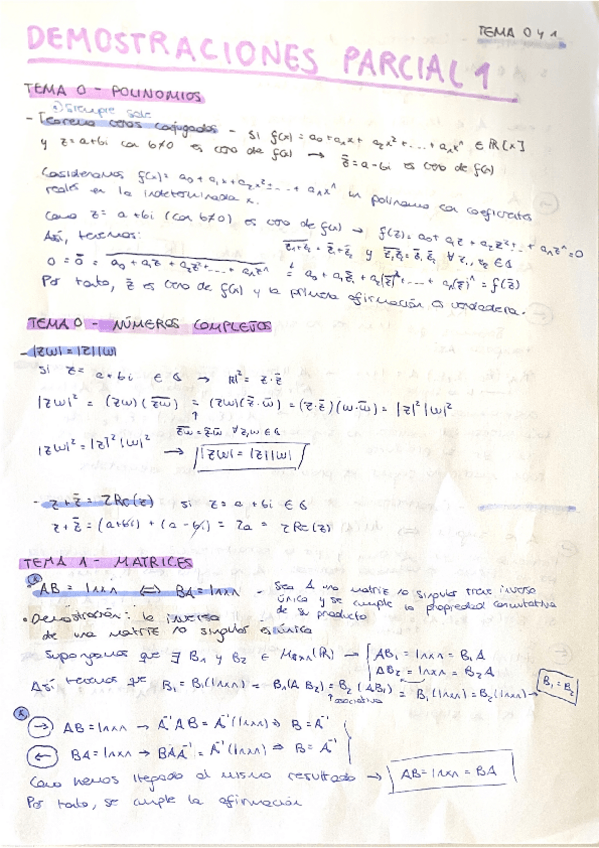 TEMA 0 y 1
DEMOSTRACIONES PARCIAL 1
TEMA 0 - POLINOMIOS
Siempre sale
- Teorema ceros conjugados - Si f(x) = a₀+a₁x+ a₂x²+...+aₙxⁿ ∈ ℝ[x]
y z=a+bi con b≠0 es cero de f(x) → z̄=a-bi es cero de f(x)
Consideramos f(x)= a₀+a₁x+a₂x²+...+aₙxⁿ un polinomio con coeficientes
reales en la indeterminada x.
Como z= a+bi (con b≠0) es cero de f(x) → f(z)= a₀+a₁z+a₂z²+...+aₙzⁿ=0
Así, tenemos:
0 = 0̄ = a₀ + a₁z + a₂z²+...+aₙzⁿ = a₀ + a₁z̄ + a₂(z̄)²+...+ aₙ(z̄)ⁿ = f(z̄)
Por tanto, z̄ es cero de f(x) y la primera afirmación es verdadera.
TEMA 0 - NÚMEROS COMPLEJOS
- |zw| = |z||w|
Si z= a+bi ∈ ℂ → |z|² = z·z̄
|zw|² = (zw)(z̄w̄) = (zw)(z̄·w̄) = (z·z̄)(w·w̄) = |z|²|w|²
z̄w̄ = z̄·w̄ ∀z,w ∈ ℂ
|zw|² = |z|²|w|² → |zw| = |z||w|
- z+z̄ = 2Re(z) si z= a+bi ∈ ℂ
z+z̄ = (a+bi) + (a-bi) = 2a = 2Re(z)
TEMA 1 - MATRICES
AB = Inxn ⟺ BA = Inxn - Sea A una matriz no singular tiene inversa
única y se cumple la propiedad conmutativa
de su producto
• Demostración: la inversa
de una matriz no singular es única
Supongamos que ∃ B₁ y B₂ ∈ Mₙₓₙ(ℝ) → AB₁ = Inxn = B₁A
AB₂ = Inxn = B₂A
Así tenemos que B₁ = B₁(Inxn) = B₁(A B₂) = B₂(AB₁) = B₁(Inxn) = B₂(Inxn) → B₁ = B₂
asociativa
(→) AB = Inxn → A⁻¹AB = A⁻¹(Inxn) ⇒ B = A⁻¹
(←) BA = Inxn → BAA⁻¹ = A⁻¹(Inxn) ⇒ B = A⁻¹
Como hemos llegado al mismo resultado → AB = Inxn = BA
Por tanto, se cumple la afirmación